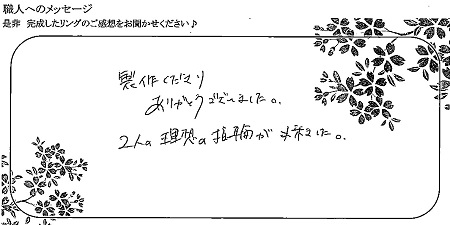 職人へのメッセージ
是非 完成したリングのご感想をお聞かせください♪
製作くださり
ありがとうございました。
2人の理想の指輪が出来ました。